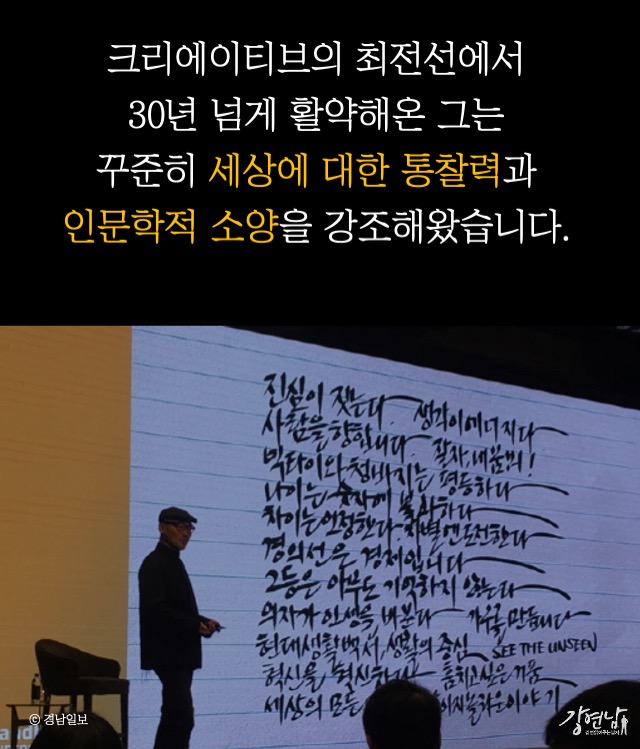 크리에이티브의 최전선에서
30년 넘게 활약해온 그는
꾸준히 세상에 대한 통찰력과
인문학적 소양을 강조해왔습니다.
진심이 짓는다 생각이 에너지다
사람을 향합니다 잘자, 내 꿈꿔!
넥타이와 청바지는 평등하다
나이는 숫자에 불과하다
차이는 인정한다. 차별엔 도전한다
경의선은 경제입니다
2등은 아무도 기억하지 않는다
의자가 인생을 바꾼다 가구를 만듭니다
현대생활백서, 생활의 중심 SEE THE UNSEEN
혁신을 혁신하다 훔치고 싶은
세상의 모든 이야기
© 경남일보
강연남